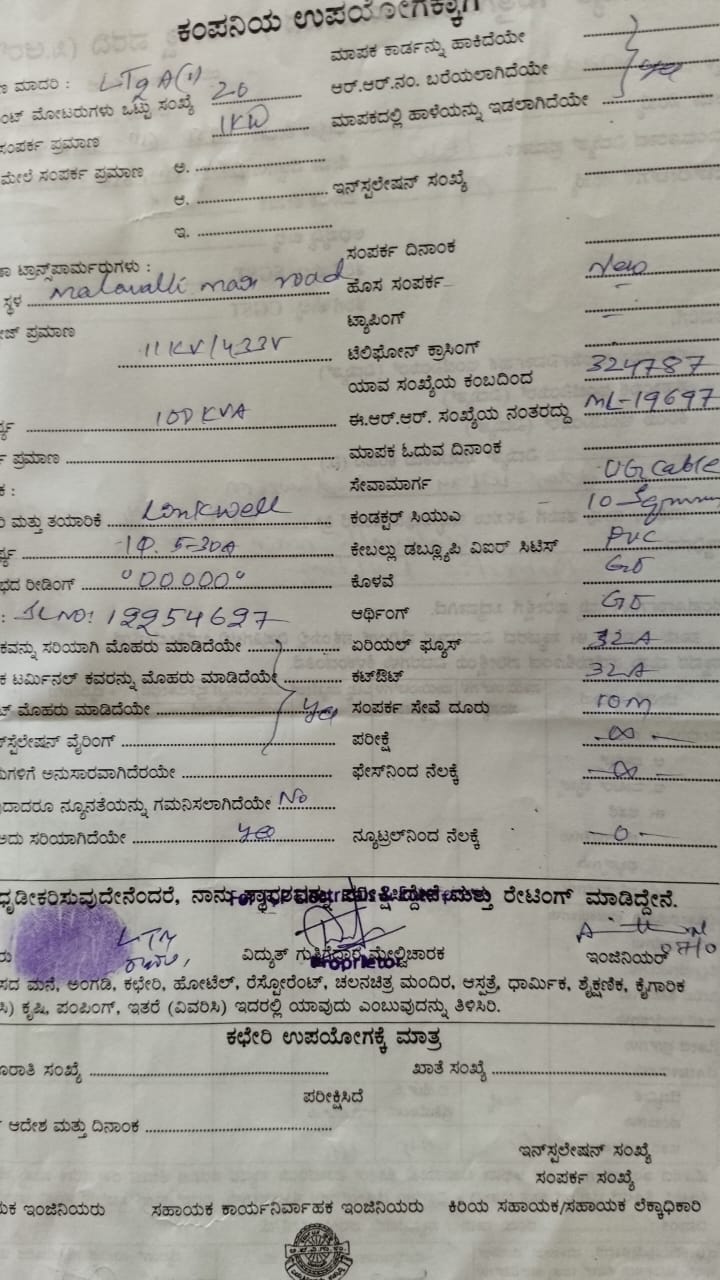 ಕಂಪನಿಯ ಉಪಯೋಗಕ್ಕಾಗಿ
ಮಾದರಿ : LTgA(i) ಮಾಪಕ ಕಾರ್ಡನ್ನು ಹಾಕಿದೆಯೇ
ಮೋಟರುಗಳು ಒಟ್ಟು ಸಂಖ್ಯೆ 20 ಆರ್.ಆರ್.ನಂ. ಬರೆಯಲಾಗಿದೆಯೇ
ಸಂಪರ್ಕ ಪ್ರಮಾಣ 1KW ಮಾಪಕದಲ್ಲಿ ಹಾಳೆಯನ್ನು ಇಡಲಾಗಿದೆಯೇ
ಮೇಲೆ ಸಂಪರ್ಕ ಪ್ರಮಾಣ ಅ.
ಆ. ಇನ್‌ಸ್ಪಲೇಷನ್ ಸಂಖ್ಯೆ
ಇ.
ಟ್ರಾನ್ಸ್‌ಪಾರ್ಮರುಗಳು : ಸಂಪರ್ಕ ದಿನಾಂಕ
ಸ್ಥಳ Malavalli main road ಹೊಸ ಸಂಪರ್ಕ New
ಪ್ರಮಾಣ 11KV/433V ಟ್ಯಾಪಿಂಗ್ –
ಟೆಲಿಫೋನ್ ಕ್ರಾಸಿಂಗ್
ಯಾವ ಸಂಖ್ಯೆಯ ಕಂಬದಿಂದ 324787
100 KVA ಈ.ಆರ್.ಆರ್. ಸಂಖ್ಯೆಯ ನಂತರದ್ದು ML-19697
ಪ್ರಮಾಣ ಮಾಪಕ ಓದುವ ದಿನಾಂಕ
ಸೇವಾಮಾರ್ಗ UG cable
ಮತ್ತು ತಯಾರಿಕೆ Linkwell ಕಂಡಕ್ಟರ್ ಸಿಯುಎ 10 Sqmm
1Φ. 5-30A ಕೇಬಲ್ಲು ಡಬ್ಲ್ಯೂಪಿ ವಿಐರ್ ಸಿಟಿಸ್ PVC
ರೀಡಿಂಗ್ "00000" ಕೊಳವೆ GI
: SL NO: 12254627 ಆರ್ಥಿಂಗ್ GI
ಸರಿಯಾಗಿ ಮೊಹರು ಮಾಡಿದೆಯೇ ಏರಿಯಲ್ ಫ್ಯೂಸ್ 32A
ಟರ್ಮಿನಲ್ ಕವರನ್ನು ಮೊಹರು ಮಾಡಿದೆಯೇ ಕಟ್‌ಔಟ್ 32A
ಮೊಹರು ಮಾಡಿದೆಯೇ Yes ಸಂಪರ್ಕ ಸೇವೆ ದೂರು 10m
ವೈರಿಂಗ್ ಪರೀಕ್ಷೆ -∞-
ಅನುಸಾರವಾಗಿದೆರಯೇ ಫೇಸ್‌ನಿಂದ ನೆಲಕ್ಕೆ -∞-
ನ್ಯೂನತೆಯನ್ನು ಗಮನಿಸಲಾಗಿದೆಯೇ No
ಅದು ಸರಿಯಾಗಿದೆಯೇ Yes ನ್ಯೂಟ್ರಲ್‌ನಿಂದ ನೆಲಕ್ಕೆ -0-
ಧೃಡೀಕರಿಸುವುದೇನೆಂದರೆ, ನಾನು ಪರೀಕ್ಷಿಸಿದ್ದೇನೆ ಮತ್ತು ರೇಟಿಂಗ್ ಮಾಡಿದ್ದೇನೆ.
LTM
ವಿದ್ಯುತ್ ಗುತ್ತಿಗೆದಾರ ಮೇಲ್ವಿಚಾರಕ ಇಂಜಿನಿಯರ್
Proprietor
ಮನೆ, ಅಂಗಡಿ, ಕಛೇರಿ, ಹೋಟೆಲ್, ರೆಸ್ಟೋರೆಂಟ್, ಚಲನಚಿತ್ರ ಮಂದಿರ, ಆಸ್ಪತ್ರೆ, ಧಾರ್ಮಿಕ, ಶೈಕ್ಷಣಿಕ, ಕೈಗಾರಿಕ
ಕೃಷಿ, ಪಂಪಿಂಗ್, ಇತರೆ (ವಿವರಿಸಿ) ಇದರಲ್ಲಿ ಯಾವುದು ಎಂಬುವುದನ್ನು ತಿಳಿಸಿರಿ.
ಕಛೇರಿ ಉಪಯೋಗಕ್ಕೆ ಮಾತ್ರ
ಸಂಖ್ಯೆ ಖಾತೆ ಸಂಖ್ಯೆ
ಪರೀಕ್ಷಿಸಿದೆ
ಆದೇಶ ಮತ್ತು ದಿನಾಂಕ
ಇನ್‌ಸ್ಪಲೇಷನ್ ಸಂಖ್ಯೆ
ಸಂಪರ್ಕ ಸಂಖ್ಯೆ
ಇಂಜಿನಿಯರು ಸಹಾಯಕ ಕಾರ್ಯನಿರ್ವಾಹಕ ಇಂಜಿನಿಯರು ಕಿರಿಯ ಸಹಾಯಕ/ಸಹಾಯಕ ಲೆಕ್ಕಾಧಿಕಾರಿ